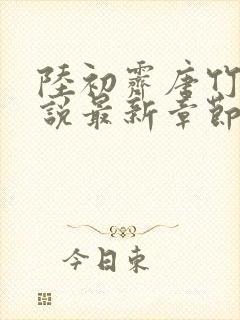 陸初霽唐竹
說最新章節
今日東